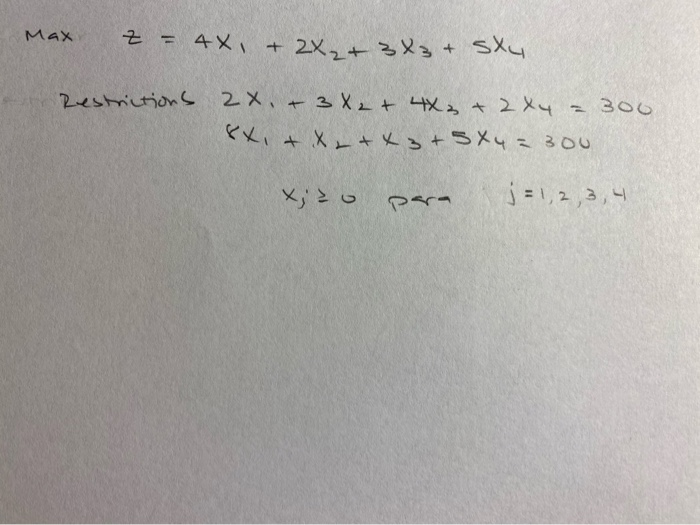 Max z = 4x₁ + 2x₂ + 3x₃ + 5x₄
Restrictions 2x₁ + 3x₂ + 4x₃ + 2x₄ = 300
8x₁ + x₂ + x₃ + 5x₄ = 300
xⱼ ≥ 0 para j = 1, 2, 3, 4